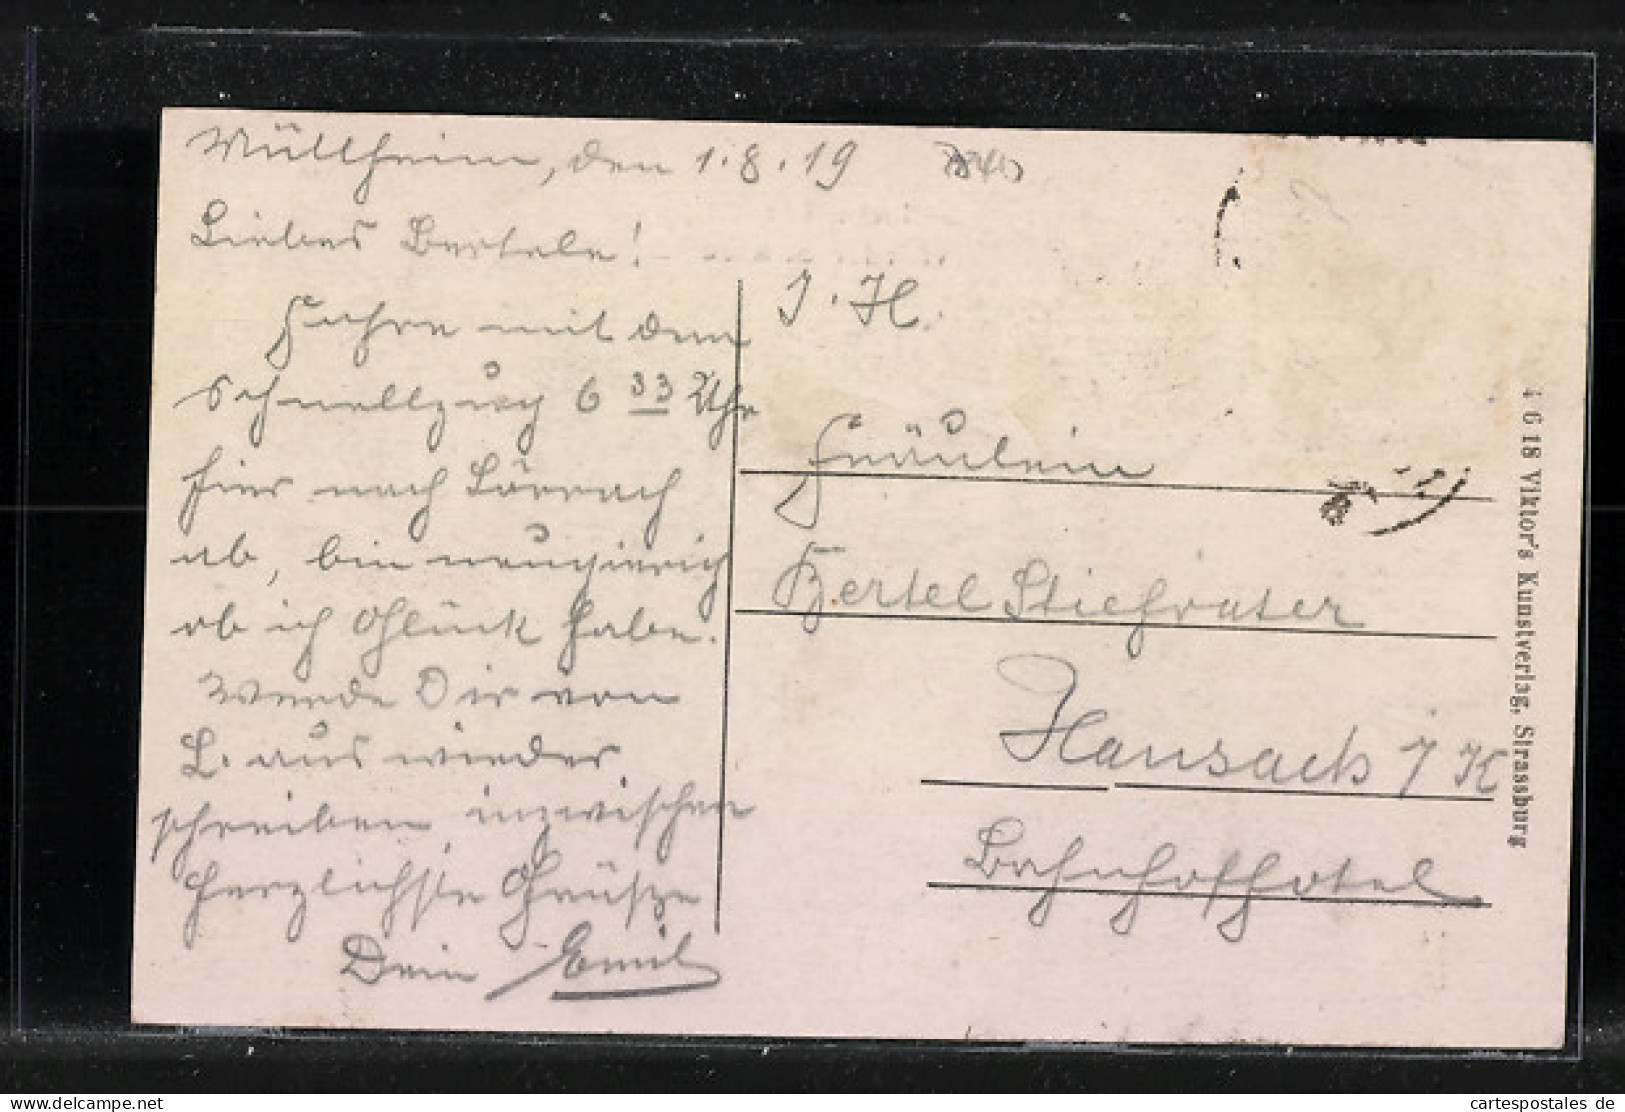 Müllheim, den 1.8.19
Liebes Bertele!
Fahre mit dem
Schnellzug 6 33 Uhr
hier nach Lörrach
ab, bin neugierig
ob ich Glück habe.
Werde Dir von
L. aus wieder
schreiben inzwischen
herzlichste Grüsse
Dein Emil
J. H.
Fräulein
Bertel Stiefvater
Hausach i/K
Bahnhofhotel
4 6 18 Viktor's Kunstverlag, Strassburg
cartespostales de